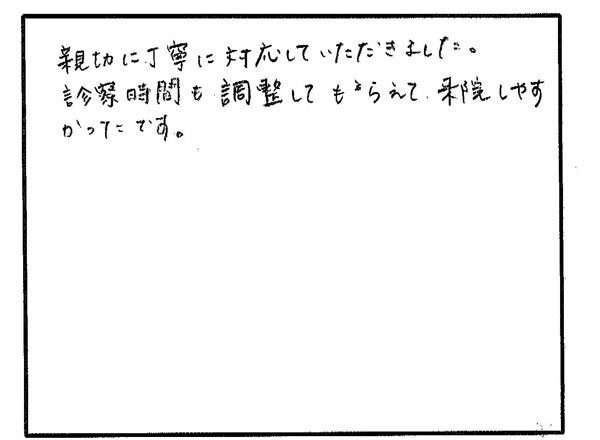 親切に丁寧に対応していただきました。
診察時間も調整してもらえて、来院しやす
かったです。